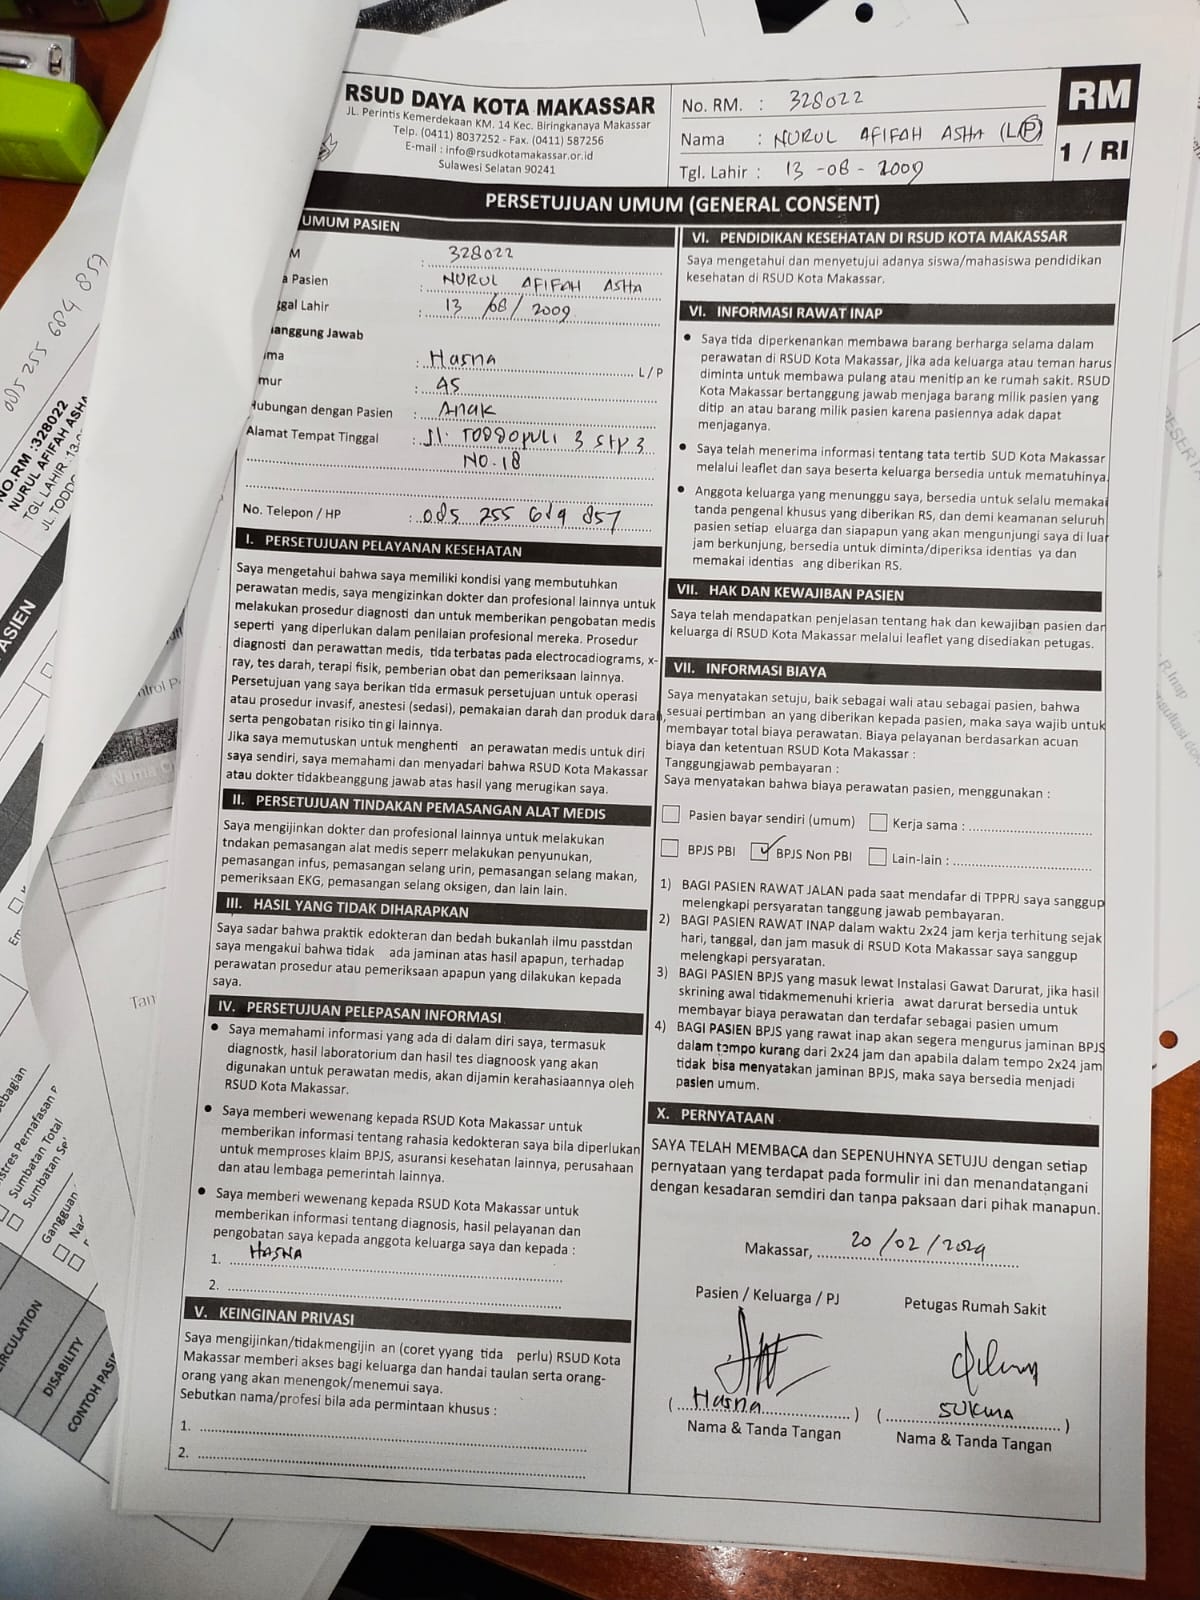 RSUD DAYA KOTA MAKASSAR
JL. Perintis Kemerdekaan KM. 14 Kec. Biringkanaya Makassar
Telp. (0411) 8037252 - Fax. (0411) 587256
E-mail : info@rsudkotamakassar.or.id
Sulawesi Selatan 90241
No. RM. : 328022
Nama : NURUL AFIFAH ASHA (L/P)
Tgl. Lahir : 13 - 08 - 2009
RM
1 / RI
PERSETUJUAN UMUM (GENERAL CONSENT)
UMUM PASIEN
M : 328022
a Pasien : NURUL AFIFAH ASHA
ggal Lahir : 13 / 08 / 2009
anggung Jawab
ma : Hasna L/P
mur : 45
Hubungan dengan Pasien : Anak
Alamat Tempat Tinggal : Jl. Toddopuli 3 stp 3
NO. 18
No. Telepon / HP : 085 255 689 857
I. PERSETUJUAN PELAYANAN KESEHATAN
Saya mengetahui bahwa saya memiliki kondisi yang membutuhkan
perawatan medis, saya mengizinkan dokter dan profesional lainnya untuk
melakukan prosedur diagnosti dan untuk memberikan pengobatan medis
seperti yang diperlukan dalam penilaian profesional mereka. Prosedur
diagnosti dan perawattan medis, tida terbatas pada electrocadiograms, x-
ray, tes darah, terapi fisik, pemberian obat dan pemeriksaan lainnya.
Persetujuan yang saya berikan tida ermasuk persetujuan untuk operasi
atau prosedur invasif, anestesi (sedasi), pemakaian darah dan produk darah,
serta pengobatan risiko tin gi lainnya.
Jika saya memutuskan untuk menghenti an perawatan medis untuk diri
saya sendiri, saya memahami dan menyadari bahwa RSUD Kota Makassar
atau dokter tidakbeanggung jawab atas hasil yang merugikan saya.
II. PERSETUJUAN TINDAKAN PEMASANGAN ALAT MEDIS
Saya mengijinkan dokter dan profesional lainnya untuk melakukan
tndakan pemasangan alat medis seperr melakukan penyunukan,
pemasangan infus, pemasangan selang urin, pemasangan selang makan,
pemeriksaan EKG, pemasangan selang oksigen, dan lain lain.
III. HASIL YANG TIDAK DIHARAPKAN
Saya sadar bahwa praktik edokteran dan bedah bukanlah ilmu passtdan
saya mengakui bahwa tidak ada jaminan atas hasil apapun, terhadap
perawatan prosedur atau pemeriksaan apapun yang dilakukan kepada
saya.
IV. PERSETUJUAN PELEPASAN INFORMASI
• Saya memahami informasi yang ada di dalam diri saya, termasuk
diagnostk, hasil laboratorium dan hasil tes diagnoosk yang akan
digunakan untuk perawatan medis, akan dijamin kerahasiaannya oleh
RSUD Kota Makassar.
• Saya memberi wewenang kepada RSUD Kota Makassar untuk
memberikan informasi tentang rahasia kedokteran saya bila diperlukan
untuk memproses klaim BPJS, asuransi kesehatan lainnya, perusahaan
dan atau lembaga pemerintah lainnya.
• Saya memberi wewenang kepada RSUD Kota Makassar untuk
memberikan informasi tentang diagnosis, hasil pelayanan dan
pengobatan saya kepada anggota keluarga saya dan kepada :
1. HASNA
2.
V. KEINGINAN PRIVASI
Saya mengijinkan/tidakmengijin an (coret yyang tida perlu) RSUD Kota
Makassar memberi akses bagi keluarga dan handai taulan serta orang-
orang yang akan menengok/menemui saya.
Sebutkan nama/profesi bila ada permintaan khusus :
1.
2.
VI. PENDIDIKAN KESEHATAN DI RSUD KOTA MAKASSAR
Saya mengetahui dan menyetujui adanya siswa/mahasiswa pendidikan
kesehatan di RSUD Kota Makassar.
VI. INFORMASI RAWAT INAP
• Saya tida diperkenankan membawa barang berharga selama dalam
perawatan di RSUD Kota Makassar, jika ada keluarga atau teman harus
diminta untuk membawa pulang atau menitip an ke rumah sakit. RSUD
Kota Makassar bertanggung jawab menjaga barang milik pasien yang
ditip an atau barang milik pasien karena pasiennya adak dapat
menjaganya.
• Saya telah menerima informasi tentang tata tertib SUD Kota Makassar
melalui leaflet dan saya beserta keluarga bersedia untuk mematuhinya.
• Anggota keluarga yang menunggu saya, bersedia untuk selalu memakai
tanda pengenal khusus yang diberikan RS, dan demi keamanan seluruh
pasien setiap eluarga dan siapapun yang akan mengunjungi saya di luar
jam berkunjung, bersedia untuk diminta/diperiksa identias ya dan
memakai identias ang diberikan RS.
VII. HAK DAN KEWAJIBAN PASIEN
Saya telah mendapatkan penjelasan tentang hak dan kewajiban pasien dan
keluarga di RSUD Kota Makassar melalui leaflet yang disediakan petugas.
VII. INFORMASI BIAYA
Saya menyatakan setuju, baik sebagai wali atau sebagai pasien, bahwa
sesuai pertimban an yang diberikan kepada pasien, maka saya wajib untuk
membayar total biaya perawatan. Biaya pelayanan berdasarkan acuan
biaya dan ketentuan RSUD Kota Makassar :
Tanggungjawab pembayaran :
Saya menyatakan bahwa biaya perawatan pasien, menggunakan :
Pasien bayar sendiri (umum) Kerja sama :
BPJS PBI ✓ BPJS Non PBI Lain-lain :
1) BAGI PASIEN RAWAT JALAN pada saat mendafar di TPPRJ saya sanggup
melengkapi persyaratan tanggung jawab pembayaran.
2) BAGI PASIEN RAWAT INAP dalam waktu 2x24 jam kerja terhitung sejak
hari, tanggal, dan jam masuk di RSUD Kota Makassar saya sanggup
melengkapi persyaratan.
3) BAGI PASIEN BPJS yang masuk lewat Instalasi Gawat Darurat, jika hasil
skrining awal tidakmemenuhi krieria awat darurat bersedia untuk
membayar biaya perawatan dan terdafar sebagai pasien umum
4) BAGI PASIEN BPJS yang rawat inap akan segera mengurus jaminan BPJS
dalam tempo kurang dari 2x24 jam dan apabila dalam tempo 2x24 jam
tidak bisa menyatakan jaminan BPJS, maka saya bersedia menjadi
pasien umum.
X. PERNYATAAN
SAYA TELAH MEMBACA dan SEPENUHNYA SETUJU dengan setiap
pernyataan yang terdapat pada formulir ini dan menandatangani
dengan kesadaran semdiri dan tanpa paksaan dari pihak manapun.
Makassar, 20 / 02 / 2024
Pasien / Keluarga / PJ Petugas Rumah Sakit
( Hasna ) ( SUKMA )
Nama & Tanda Tangan Nama & Tanda Tangan
NO.RM :328022
NURUL AFIFAH ASHA
TGL LAHIR : 13-0
JL TODDO
ASIEN
Sumbatan Total
Gangguan
DISABILITY
CONTOH PASI
R.Inap